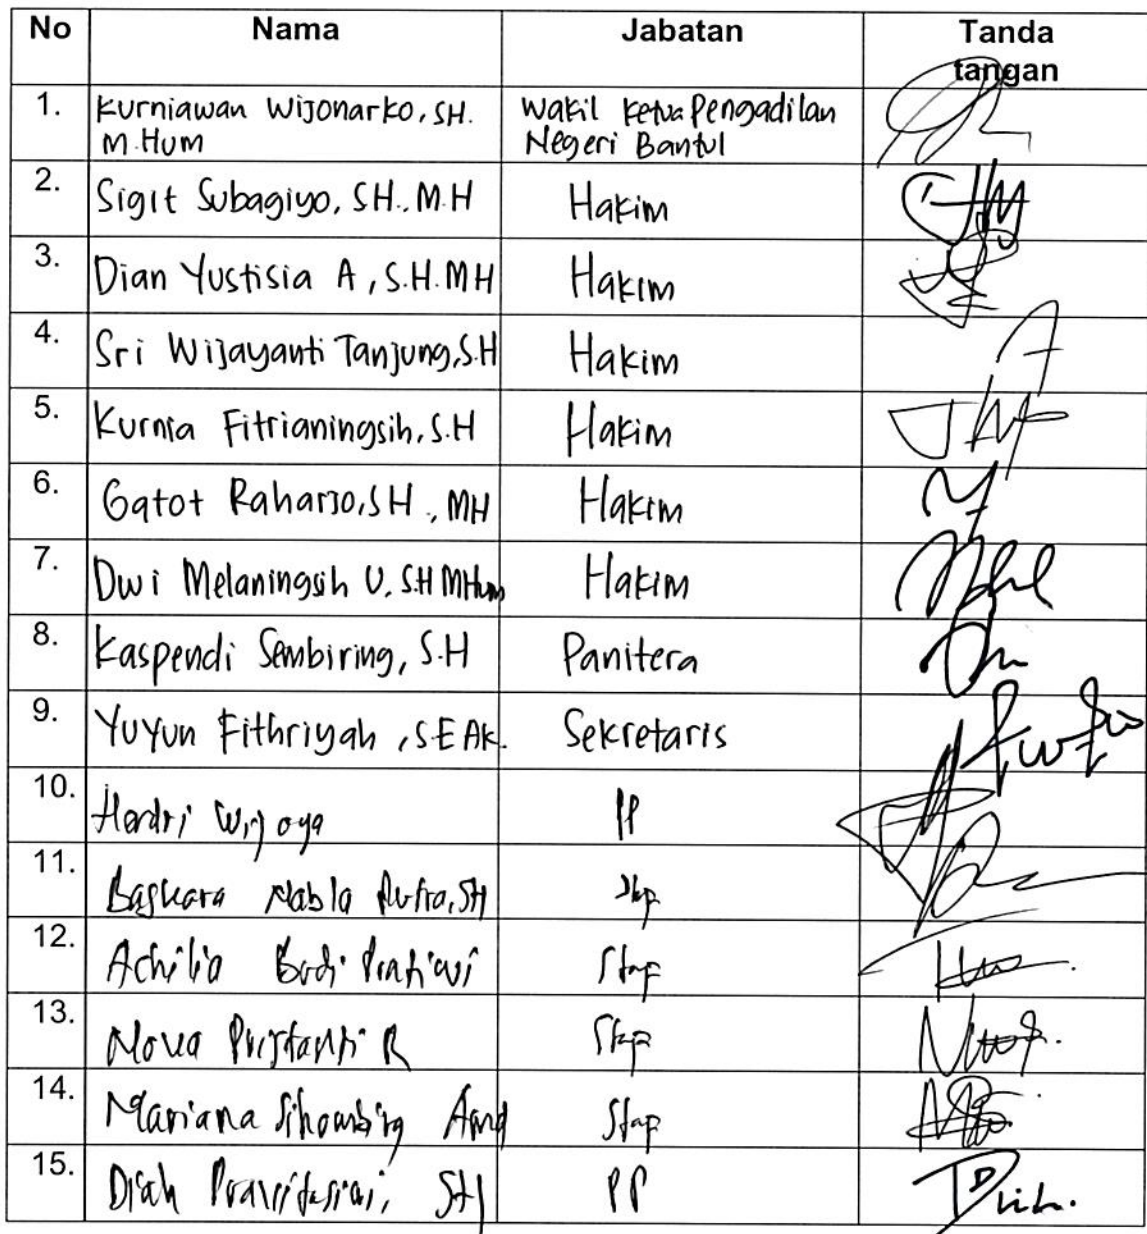 No Nama Jabatan Tanda
tangan
1. Kurniawan Wijonarko, SH. Wakil Ketua Pengadilan
M.Hum Negeri Bantul
2. Sigit Subagiyo, SH., M.H Hakim
3. Dian Yustisia A, S.H.MH Hakim
4. Sri Wijayanti Tanjung, S.H Hakim
5. Kurnia Fitrianingsih, S.H Hakim
6. Gatot Raharjo, SH., MH Hakim
7. Dwi Melaningsih U, S.H MHum Hakim
8. Kaspendi Sembiring, S.H Panitera
9. Yuyun Fithriyah, S.E Ak. Sekretaris
10. Hendri Wijoya PP
11. Baskara Nabla Putra, SH
12. Achilia Budi Pratiwi Stap
13. Nova R Stap
14. Mariana Sihombing Amd Stap
15. Diah SH PP